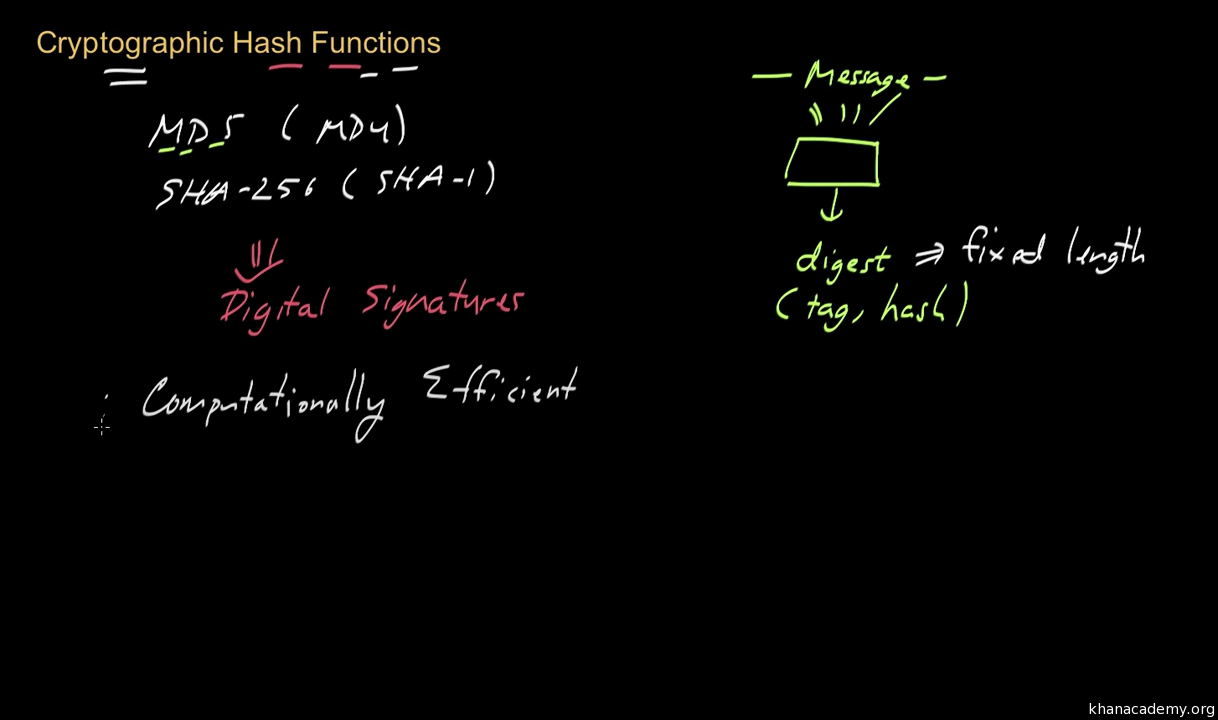 Cryptographic Hash Functions
MD5 (MD4)
SHA-256 (SHA-1)
Digital Signatures
Computationally Efficient
Message
digest ⇒ fixed length
(tag, hash)
khanacademy.org